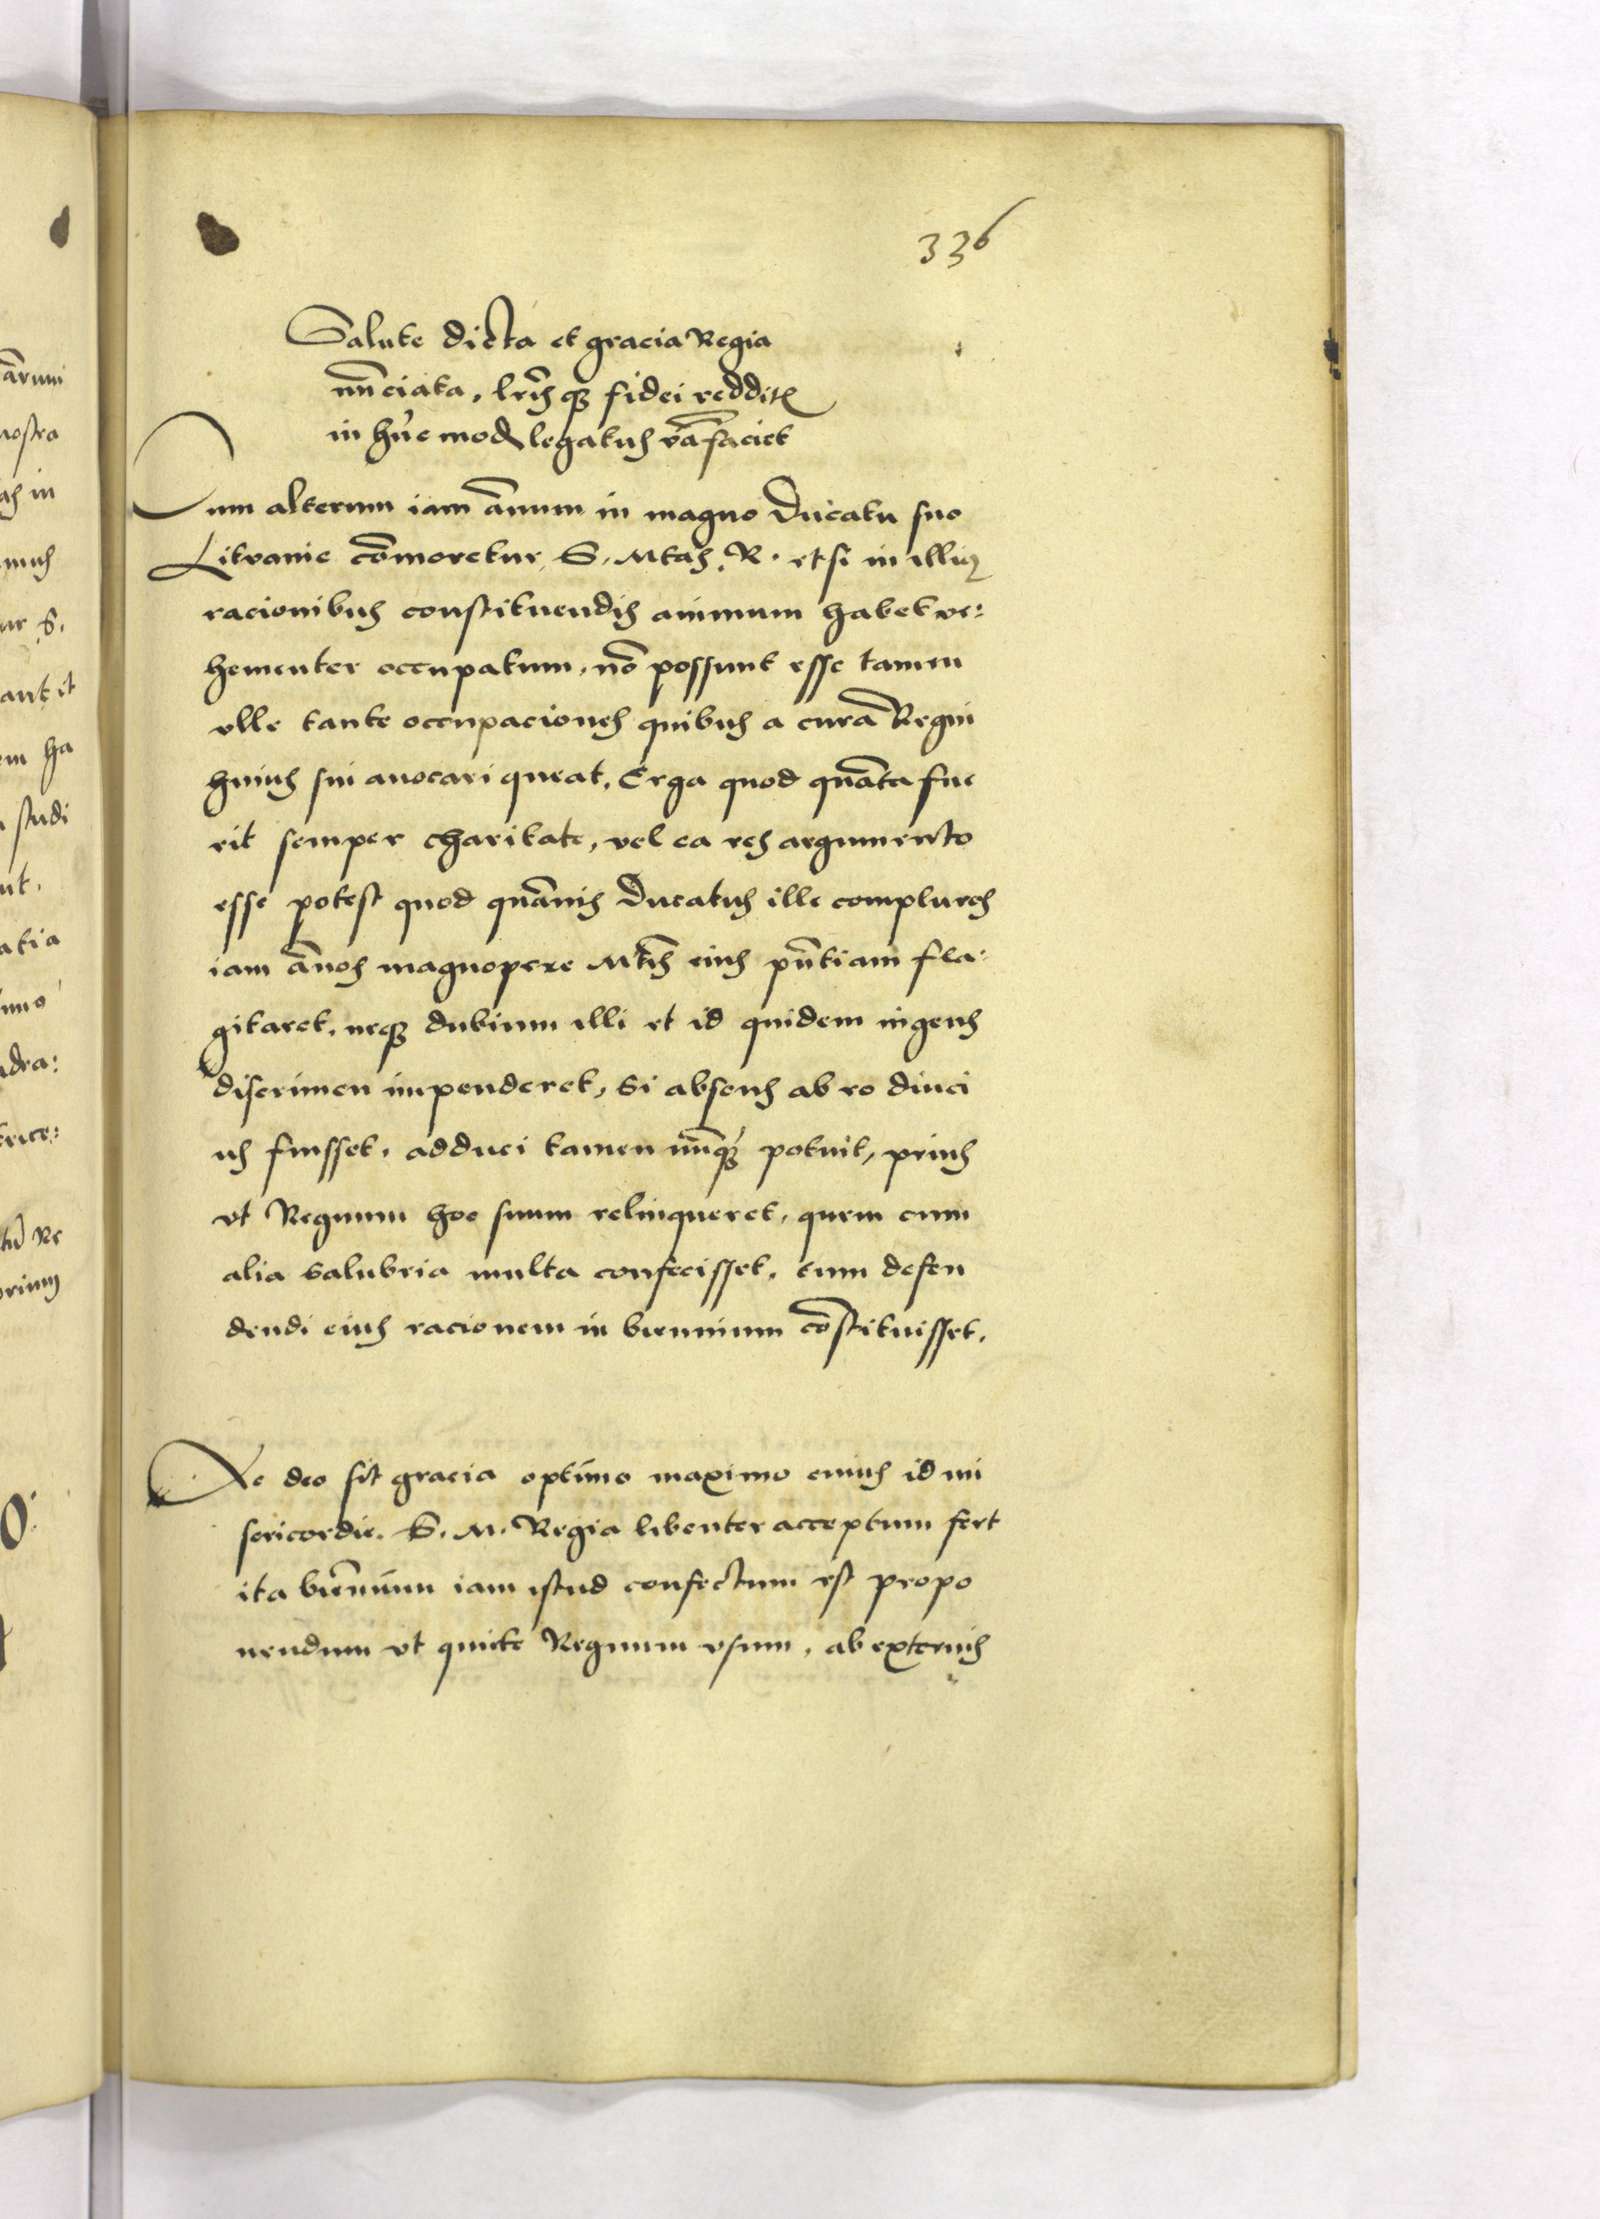 336
Salute dicta et gracia Regia
nũnciata, lr̃isq̃ꝫ fidei redditꝭ
in hũc modũ legatus v̾ba faciet
Cum alterum iam ãnnum in magno Ducatu suo
Litvanie cõmoretur, S. Mtas. R. etsi in illiꝰ
racionibus constituendis animum habet ve:
hementer occupatum, nõ possunt esse tamen
vlle tante occupaciones quibus a cura Regni
huius sui auocari queat, Erga quod quãta fue
rit semper charitate, vel ea res argumento
esse potest quod quãuis Ducatus ille complures
iam ãnos magnopere Mtis eius pñtiam fla:
gitaret, neqꝫ dubium illi et id quidem ingens
discrimen impenderet, si absens ab eo diuci
us fuisset, adduci tamen nũnqꝫ potuit, prius
vt Regnum hoc suum relinqueret, quam cum
alia salubria multa confecisset, tum defen
dendi eius racionem in biennium cõstituisset.
Ac deo sit gracia optimo maximo cuius id mi
sericordie. S. M. Regia libenter acceptum fert
ita biẽnium iam istud confectum est propo
nendum vt quiete Regnum vsum, ab externis
ãrum
nostra
as in
mus
ur S.
ant et
em ha
studi
nt.
atia
imo
dra: